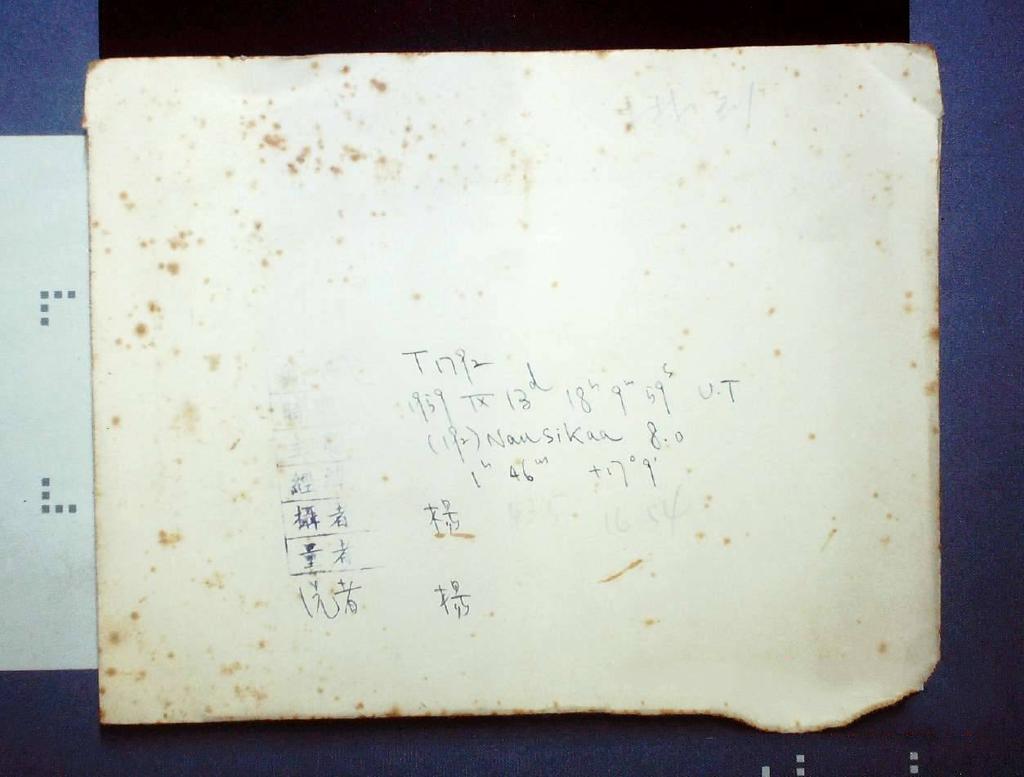 T1792
1959 IX 13ᵈ 18ʰ 9ᵐ 59ˢ U.T
(192) Nausikaa 8.0
1ʰ 46ᵐ +17° 9'
經
攝者 楊
量者
洗者 楊
16 54